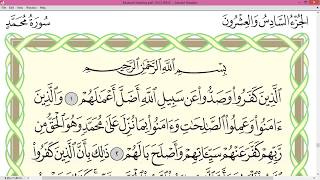 سُورَةُ مُحَمَّدٍ
الجُزْءُ السَّادِسُ وَالعِشْرُونَ
بِسْمِ اللَّهِ الرَّحْمَٰنِ الرَّحِيمِ
الَّذِينَ كَفَرُوا وَصَدُّوا عَن سَبِيلِ اللَّهِ أَضَلَّ أَعْمَٰلَهُمْ ١ وَالَّذِينَ
ءَامَنُوا وَعَمِلُوا الصَّٰلِحَٰتِ وَءَامَنُوا بِمَا نُزِّلَ عَلَىٰ مُحَمَّدٍ وَهُوَ الْحَقُّ مِن
رَّبِّهِمْ كَفَّرَ عَنْهُمْ سَيِّـَٔاتِهِمْ وَأَصْلَحَ بَالَهُمْ ٢ ذَٰلِكَ بِأَنَّ الَّذِينَ كَفَرُوا